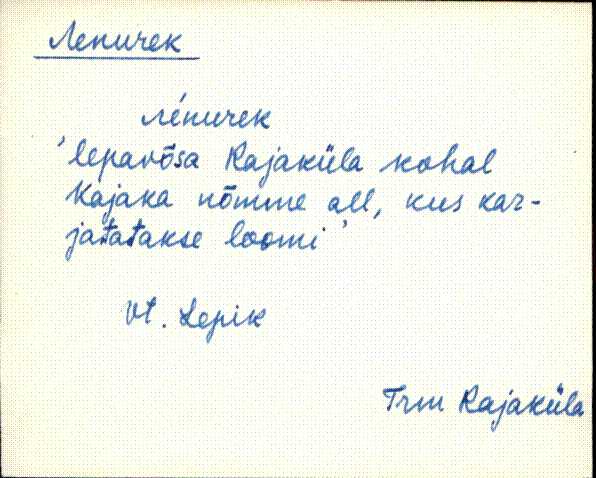 Лепичек
лéпичек
'lepavõsa Rajaküla kohal
Kajaka nõmme all, kus kar-
jatatakse loomi'
Vt. Lepik
Trm Rajaküla